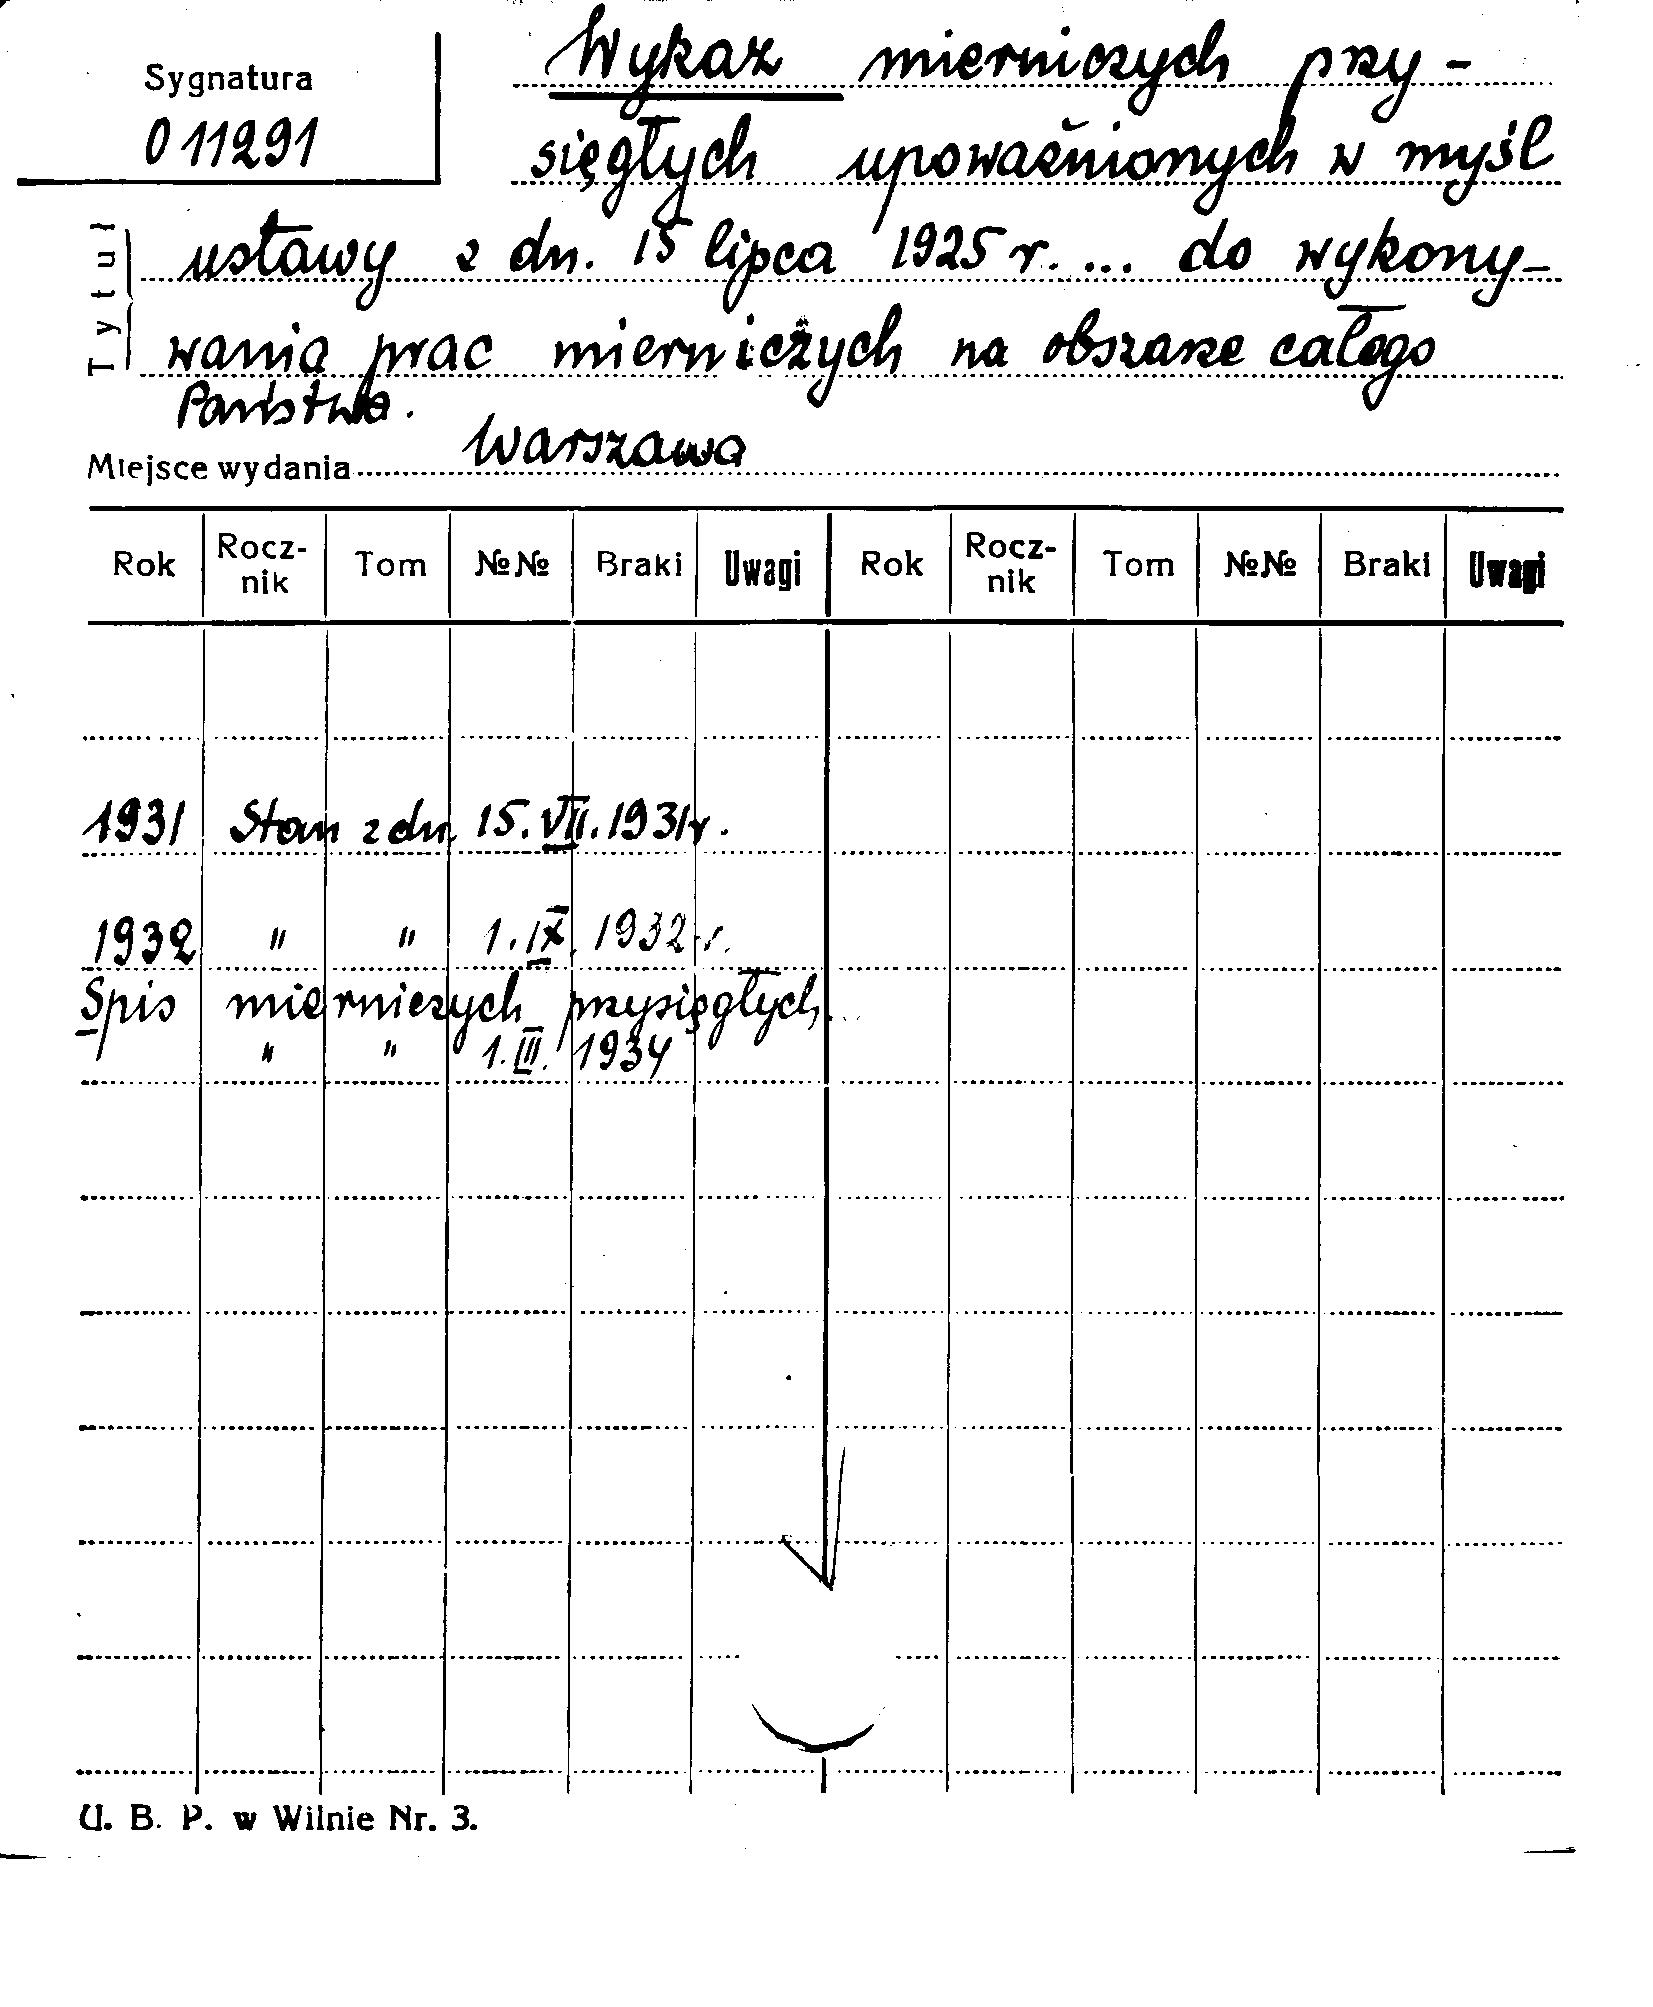 Sygnatura
011291
Wykaz mierniczych przy-
sięgłych upoważnionych w myśl
Tytuł
ustawy z dn. 15 lipca 1925 r. ... do wykony-
wania prac mierniczych na obszarze całego
Państwa.
Miejsce wydania Warszawa
Rok Rocz-nik Tom №№ Braki Uwagi Rok Rocz-nik Tom №№ Braki Uwagi
1931 Stan z dn. 15.VII.1931r.
1932 " " 1.IX.1932 r.
Spis mierniczych przysięgłych
" " 1.III.1934
U. B. P. w Wilnie Nr. 3.